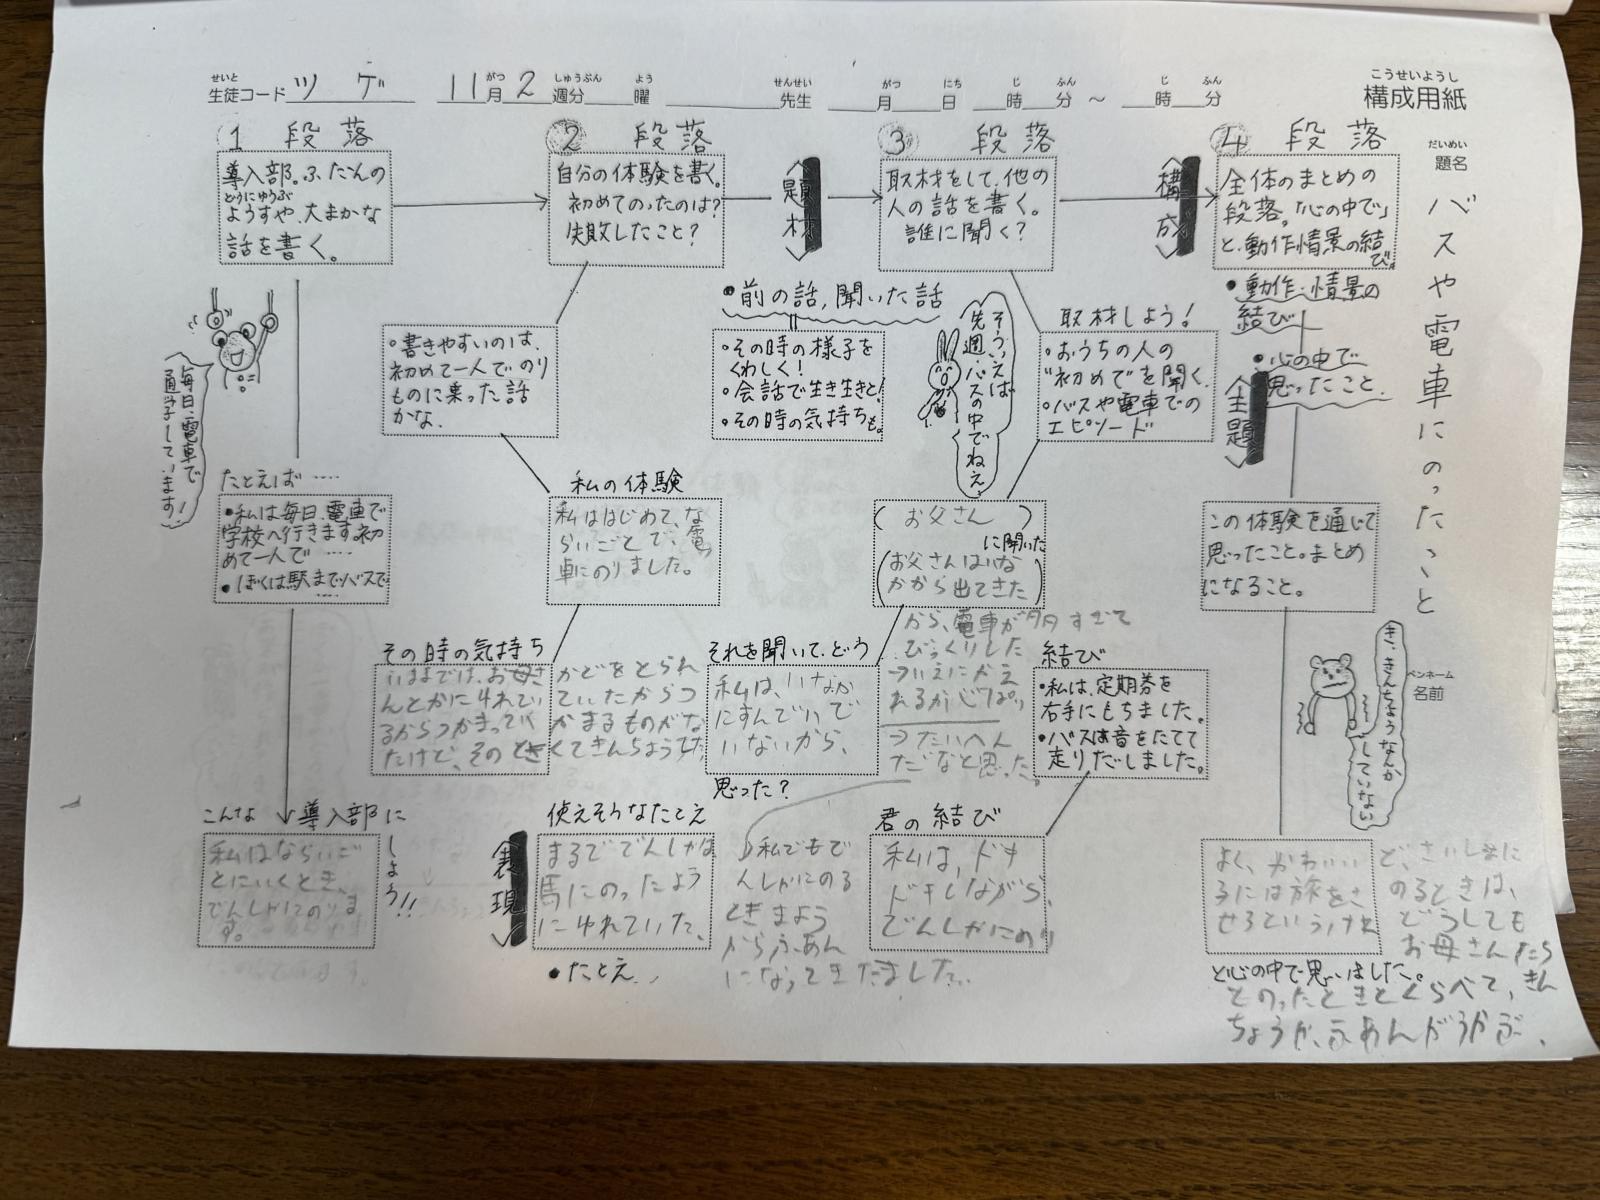 せいと
生徒コード ツゲ
11月2週分 曜
がつ しゅうぶん よう
せんせい
先生
がつ にち じ ふん じ ふん
月 日 時 分 ~ 時 分
こうせいようし
構成用紙
だいめい
題名
バスや電車にのったこと
ペンネーム
名前
1 段落
導入部。ふだんの
どうにゅうぶ
ようすや、大まかな
話を書く。
毎日、電車で
通学しています!
たとえば ……
・私は毎日、電車で
学校へ行きます。初
めて一人で ……
・ぼくは駅までバスで
……
こんな 導入部にしよう!!
私はならいご
とにいくとき、
でんしゃにのりま
す。
2 段落
自分の体験を書く。
初めてのったのは?
失敗したこと?
・書きやすいのは、
初めて一人でのり
ものに乗った話
かな。
私の体験
私ははじめて、な
らいごとで、電
車にのりました。
その時の気持ち
いままでは、お母さ
んとかに
るからつかまってい
たけど、そのとき
かどをとられ
ていたからつ
かまるものがな
くてきんちょうした
表現
使えそうなたとえ
まるででんしゃは
馬にのったよう
にゆれていた、
・たとえ、
題材
・前の話,聞いた話
・その時の様子を
くわしく!
・会話で生き生きと!
・その時の気持ちも。
そういえば
先週、バスの中でねえ
3 段落
取材をして、他の
人の話を書く。
誰に聞く?
取材しよう!
・おうちの人の
“初めて”を聞く。
・バスや電車での
エピソード
(お父さん)
に聞いた
(お父さんはいな
かから出てきた)
から、電車が多すぎて
びっくりした
→いえにかえ
れるかしんぱい
→たいへん
だなと思った。
それを聞いて、どう
私は、いなか
にすんでいで
いないから、
思った?
私でもで
んしゃにのる
ときまよう
からふあん
になってきだました…
結び
・私は、定期券を
右手にもちました。
・バスは音をたてて
走りだしました。
君の結び
私は、ドキ
ドキしながら、
でんしゃにのり
構成
4 段落
全体のまとめの
段落。「心の中で」
と、動作情景の結
び。
・動作・情景の
結び
・心の中で
思ったこと.
主題
この体験を通じて
思ったこと。まとめ
になること。
き、きんちょうなんか
していない
よく、かわいい
子には旅をさ
せろというけれ
ど、さいしょに
のるときは、
どうしても
お母さんたち
と心の中で思いました。
とのったときとくらべて、きん
ちょうか、ふあんがうかぶ、